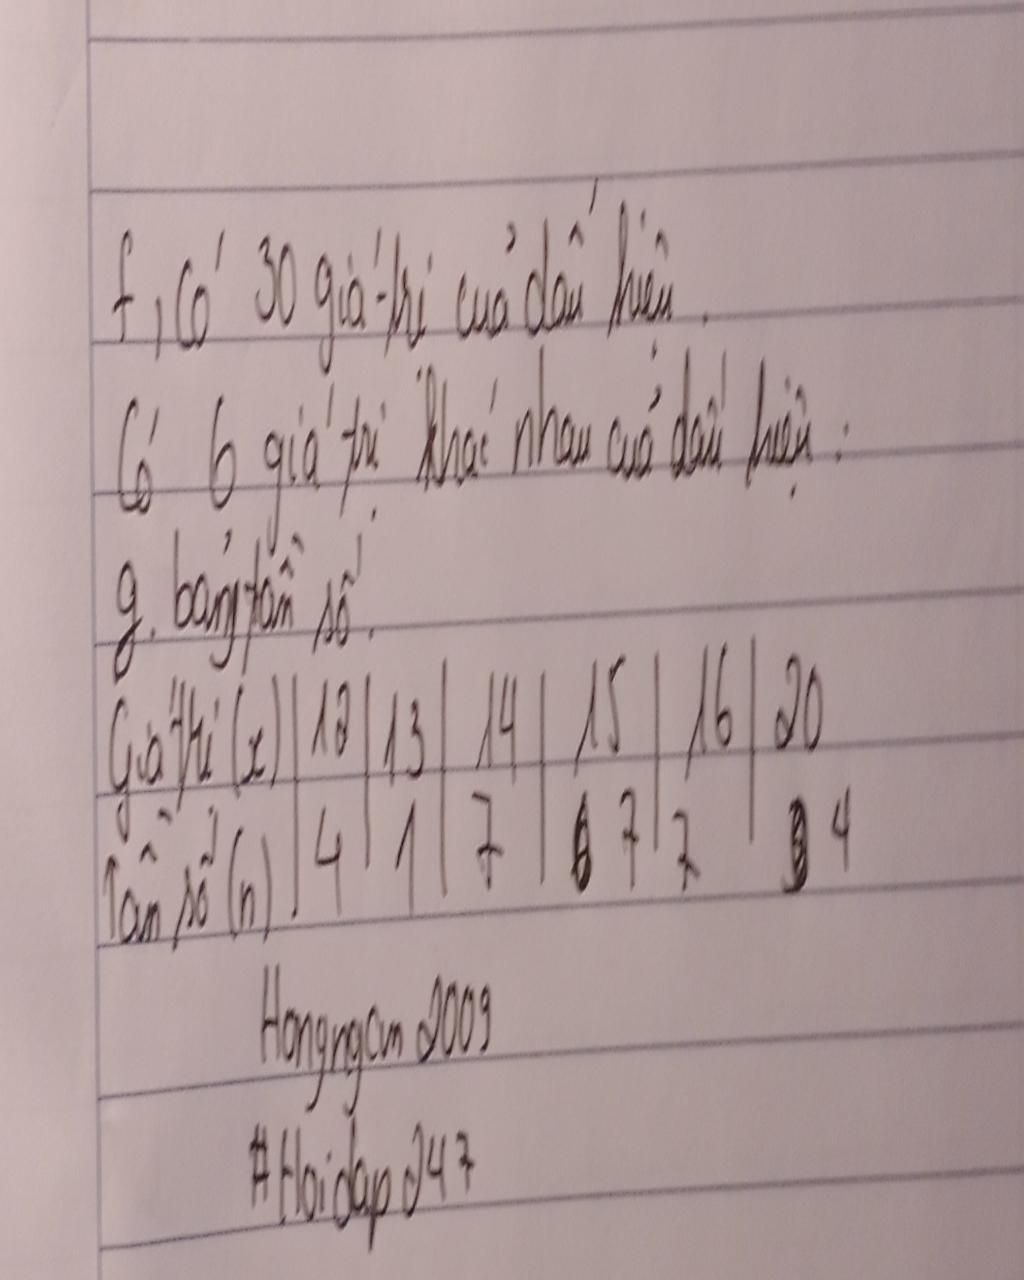 f, Có 30 giá trị của dấu hiệu.
Có 6 giá trị khác nhau của dấu hiệu:
g. bảng tần số.
Giá trị (x) | 12 | 13 | 14 | 15 | 16 | 20
Tần số (n) | 4 | 1 | 7 | 7 | 7 | 4
Hongngan2009
#Hoidap247